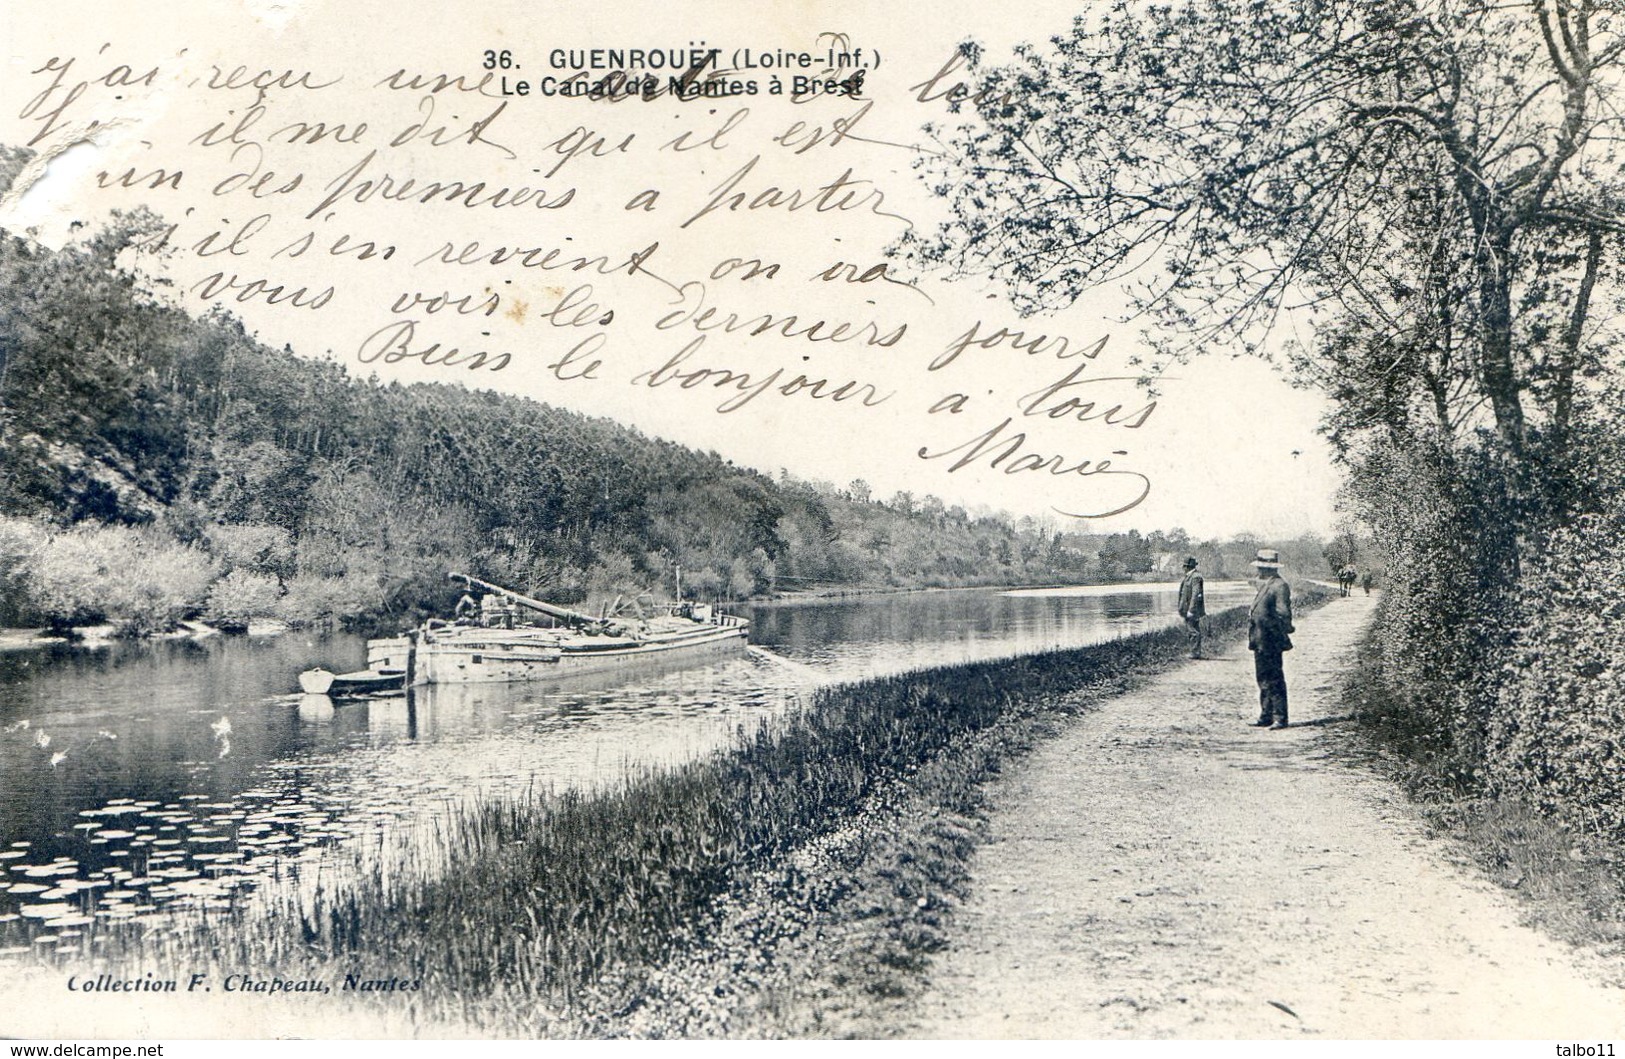 36. GUENROUËT (Loire-Inf.)
Le Canal de Nantes à Brest
j'ai reçu une carte de lou
il me dit qu'il est
un des premiers a partir
s'il s'en revient on ira
vous voir les derniers jours
Bien le bonjour à tous
Marie
Collection F. Chapeau, Nantes
www.delcampe.net
talbo11